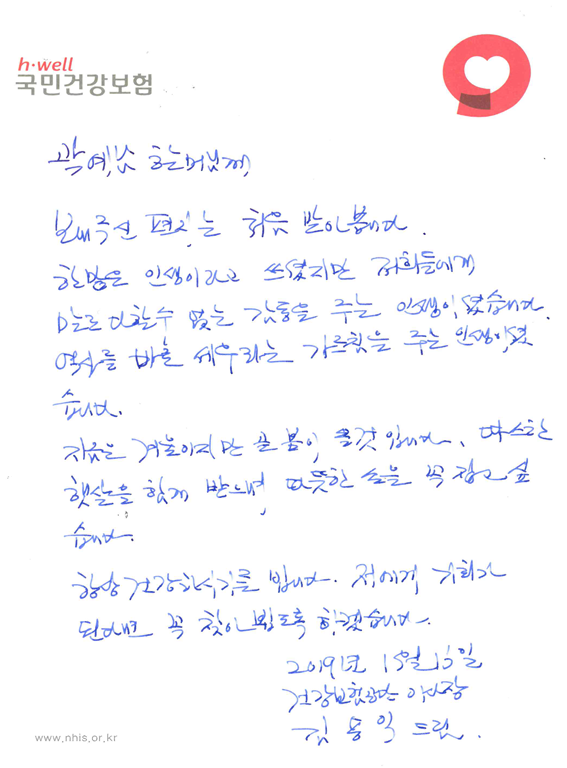 h·well
국민건강보험
곽예남 할머님께,
보내주신 편지는 처음 받아봅니다.
한많은 인생이라고 쓰셨지만 저희들에게
말로 다할수 없는 감동을 주는 인생이셨습니다.
역사를 바로 세우라는 가르침을 주는 인생이셨
습니다.
지금은 겨울이지만 곧 봄이 올것입니다. 따스한
햇살을 함께 받으며, 따뜻한 손을 꼭 잡고 싶
습니다.
항상 건강하시기를 빕니다. 저에게 기회가
된다면 꼭 찾아뵙도록 하겠습니다.
2019년 1월
건강보험공단 이사장
김용익 드림.
www.nhis.or.kr